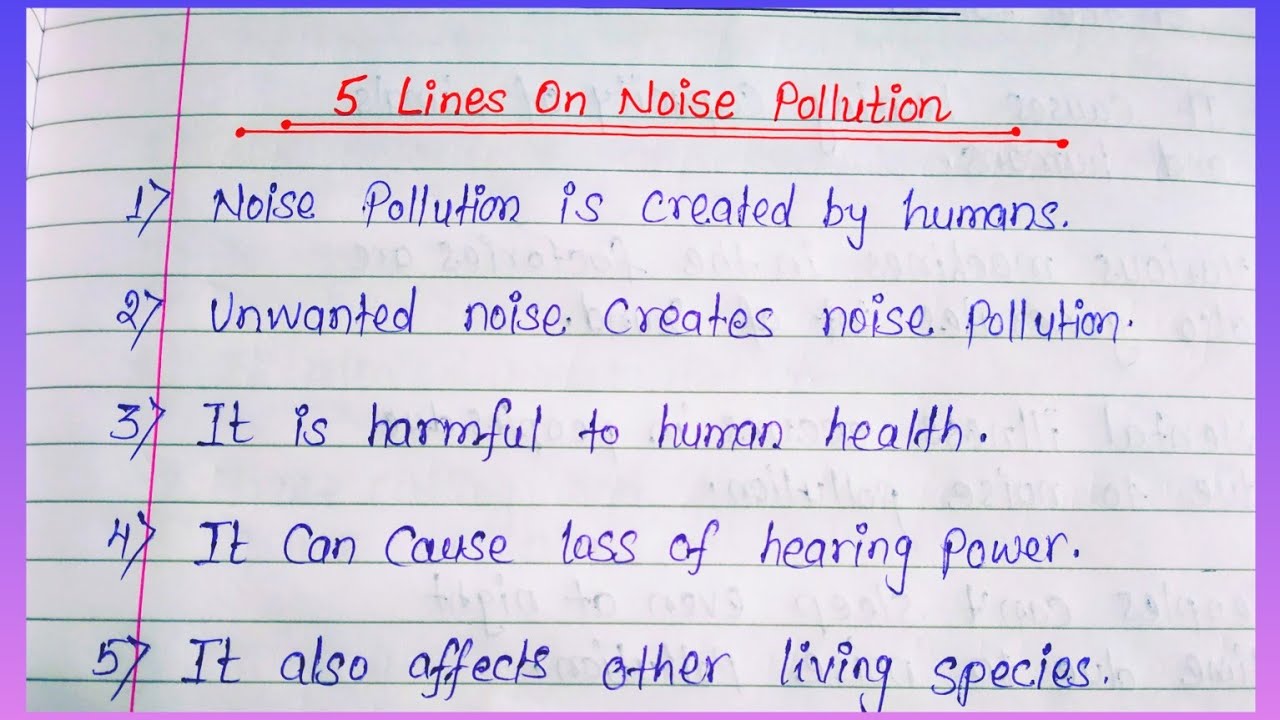 5 Lines On Noise Pollution
1) Noise Pollution is created by humans.
2) Unwanted noise creates noise pollution.
3) It is harmful to human health.
4) It Can Cause lass of hearing power.
5) It also affects other living species.